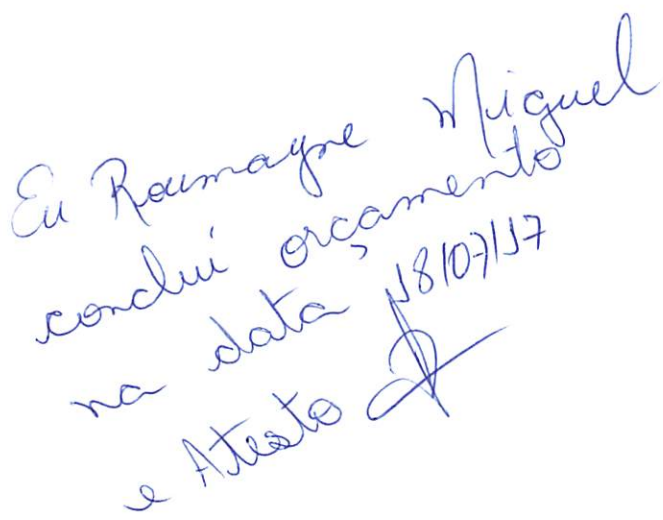 Eu Raumayne Miguel
conclui orçamento
na data 18/07/17
e Atesto